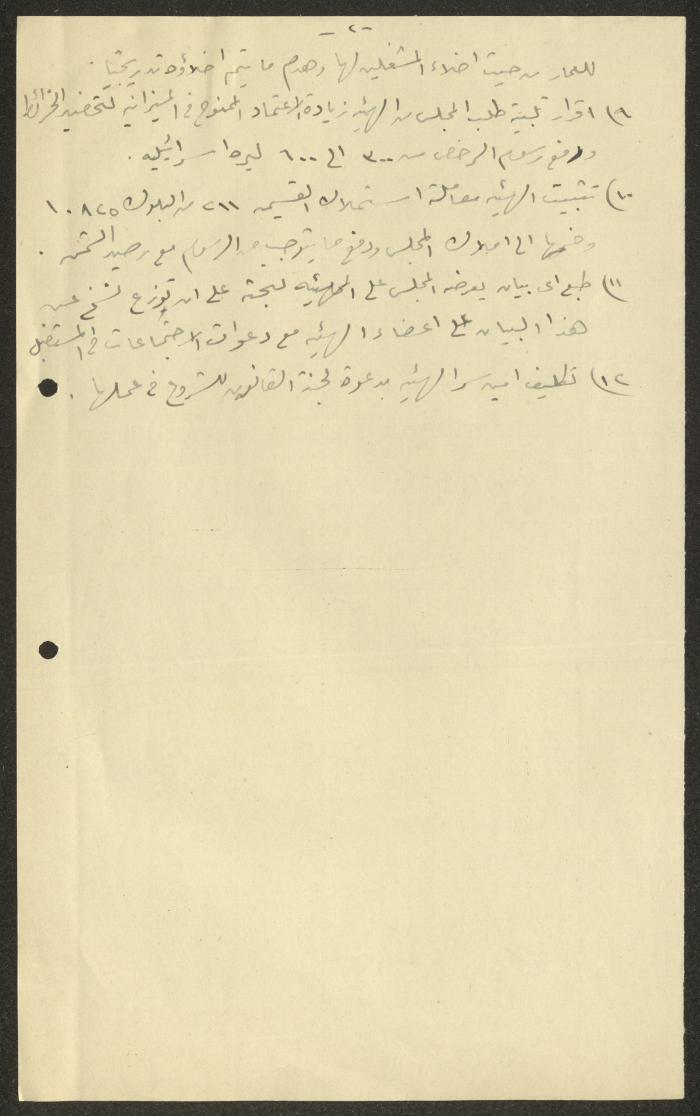 - ٢ -
للعمار من حيث اخلاء المشغلين لها وهدم ما يتم اخلاؤه تدريجيًا .
٩) اقرار تلبية طلب المجلس من الهيئه زيادة الاعتماد الممنوح في الميزانيه لتحضير الخرائط
ودفع رسوم الرخص من ٣٠٠ الى ٦٠٠ ليره اسرائيليه .
١٠) تثبيت الهيئه معاملة استملاك القسيمه ٢١١ من البلوك ١٠٨٢٥
وضمها الى املاك المجلس ودفع ما يتوجب من الرسوم مع رصيد الثمن .
١١) طبع اي بيان يعرضه المجلس على الهيئه لبحثه على ان توزع نسخ عن
هذا البيان على اعضاء الهيئه مع دعوات الاجتماعات في المستقبل
١٢) تكليف امين سر الهيئه بدعوة لجنة القانون للشروع في عملها .